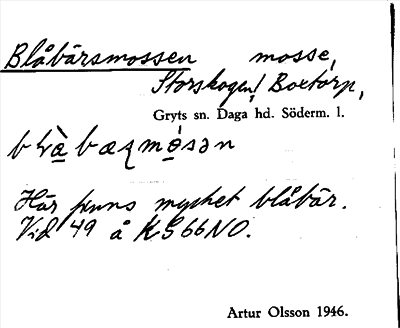 Blåbärsmossen mosse,
Storskogen, Boxtorp,
Gryts sn. Daga hd. Söderm. l.
Här finns mycket blåbär.
Vid 49 å KS66NO.
Artur Olsson 1946.